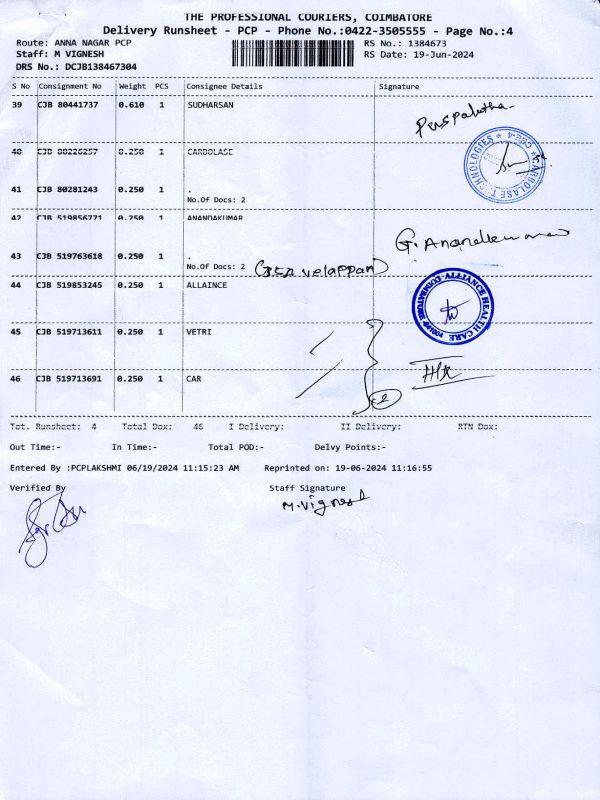 THE PROFESSIONAL COURIERS, COIMBATORE
Delivery Runsheet - PCP - Phone No.:0422-3505555 - Page No.:4
Route: ANNA NAGAR PCP
RS No.: 1384673
Staff: M VIGNESH
RS Date: 19-Jun-2024
DRS No.: DCJB138467304
S No Consignment No Weight PCS Consignee Details Signature
39 CJB 80441737 0.610 1 SUDHARSAN
40 CJB 80226257 0.250 1 CARBOLASE
41 CJB 80281243 0.250 1 .
No.Of Docs: 2
42 CJB 519856771 0.250 1 ANANDAKUMAR
G. Anandkumar
43 CJB 519763618 0.250 1 .
No.Of Docs: 2
44 CJB 519853245 0.250 1 ALLAINCE
ALLIANCE HEALTH CARE
45 CJB 519713611 0.250 1 VETRI
46 CJB 519713691 0.250 1 CAR
2
Tot. Runsheet: 4 Total Dox: 46 I Delivery: II Delivery: RTN Dox:
Out Time:- In Time:- Total POD:- Delvy Points:-
Entered By :PCPLAKSHMI 06/19/2024 11:15:23 AM Reprinted on: 19-06-2024 11:16:55
Verified By Staff Signature
M.Vignesh